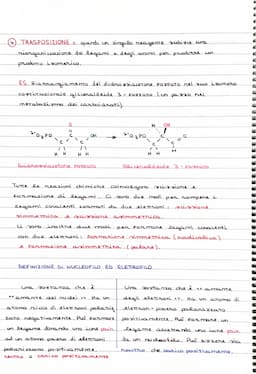 ④ TRASPOSIZIONE : quando un singolo reagente subisce una
riorganizzazione dei legami e degli atomi per produrre un
prodotto isomerico.
ES. Riarrangiamento del diidrossiacetone fosfato nel suo isomero
costituzionale gliceraldeide 3-fosfato (un passo nel
metabolismo dei carboidrati).
O
OH
H H
H H
H OH
O
H H
Diidrossiacetone fosfato Gliceraldeide 3-fosfato
Tutte le reazioni chimiche coinvolgono scissione e
formazione di legami. Ci sono due modi per rompere i
legami covalenti formati da due elettroni: scissione
simmetrica e scissione asimmetrica.
Ci sono inoltre due modi per formare legami covalenti
con due elettroni: formazione simmetrica (radicalica)
e formazione asimmetrica (polare).
DEFINIZIONE DI NUCLEOFILO ED ELETTROFILO
Una sostanza che è
"amante dei nuclei". Ha un
atomo ricco di elettroni polarizz.
zato negativamente. Può formare
un legame donando una lone pair
ad un atomo povero di elettroni
polarizzato positivamente.
neutro o carico negativamente
Una sostanza che è "amante
degli elettroni". Ha un atomo di
elettron-povero polarizzato
positivamente. Può formare un
legame accettando una lone pair
da un nucleofilo. Può essere sia
neutro che carico positivamente.